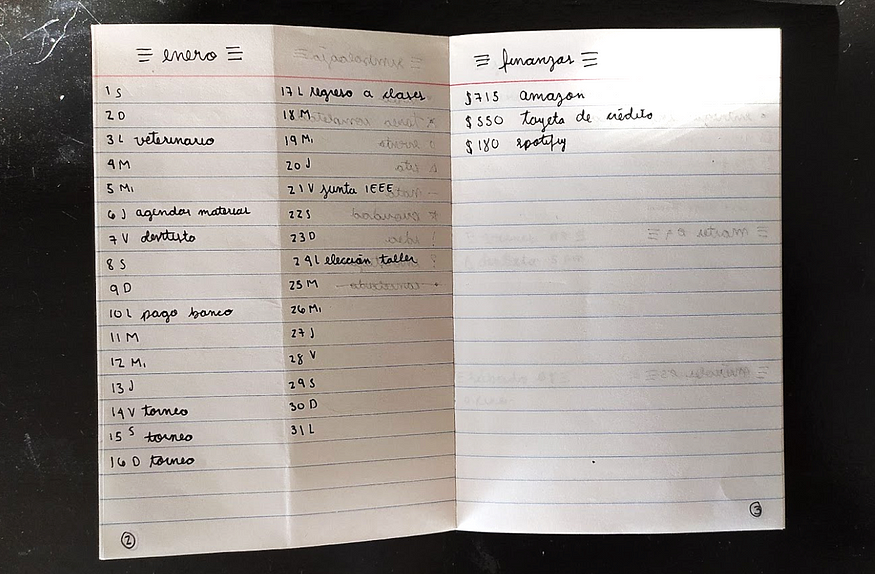 enero
1 S
2 D
3 L veterinario
4 M
5 Mi
6 J agendar material
7 V dentista
8 S
9 D
10 L pago banco
11 M
12 Mi
13 J
14 V torneo
15 S torneo
16 D torneo
2
17 L regreso a clases
18 M
19 Mi
20 J
21 V junta IEEE
22 S
23 D
24 L elección taller
25 M
26 Mi
27 J
28 V
29 S
30 D
31 L
finanzas
$715 amazon
$550 tarjeta de crédito
$180 spotify
3